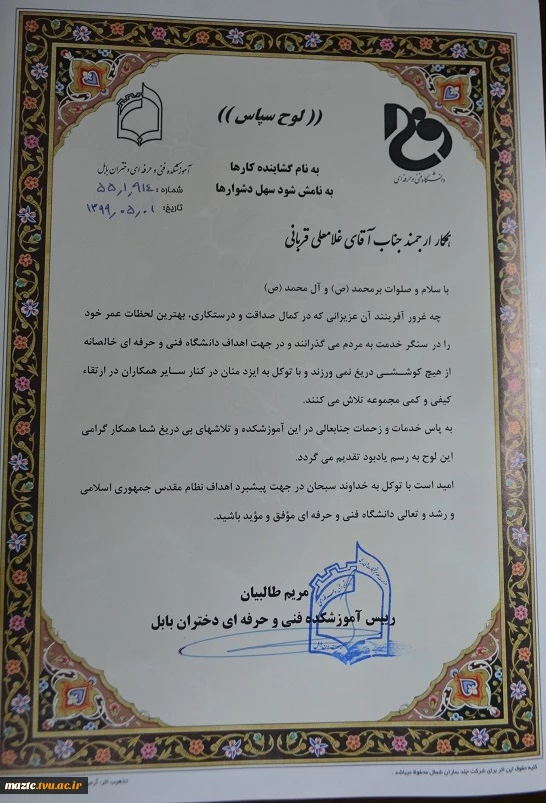 (( لوح سپاس ))
دانشگاه فنی و حرفه ای
آموزشکده فنی و حرفه ای دختران بابل
شماره : ۵۵,۱,۹۱۴
تاریخ: ۱۳۹۹,۰۵,۰۱
به نام گشاینده کارها
به نامش شود سهل دشوارها
همکار ارجمند جناب آقای غلامعلی قربانی
با سلام و صلوات برمحمد (ص) و آل محمد (ص)
چه غرور آفرینند آن عزیزانی که در کمال صداقت و درستکاری، بهترین لحظات عمر خود
را در سنگر خدمت به مردم می گذرانند و در جهت اهداف دانشگاه فنی و حرفه ای خالصانه
از هیچ کوششی دریغ نمی ورزند و با توکل به ایزد منان در کنار سایر همکاران در ارتقاء
کیفی و کمی مجموعه تلاش می کنند.
به پاس خدمات و زحمات جنابعالی در این آموزشکده و تلاشهای بی دریغ شما همکار گرامی
این لوح به رسم یادبود تقدیم می گردد.
امید است با توکل به خداوند سبحان در جهت پیشبرد اهداف نظام مقدس جمهوری اسلامی
و رشد و تعالی دانشگاه فنی و حرفه ای مؤفق و مؤید باشید.
مریم طالبیان
رییس آموزشکده فنی و حرفه ای دختران بابل
کلیه حقوق این اثر برای شرکت ایده سازان شمال محفوظ میباشد .
mazic.tvu.ac.ir